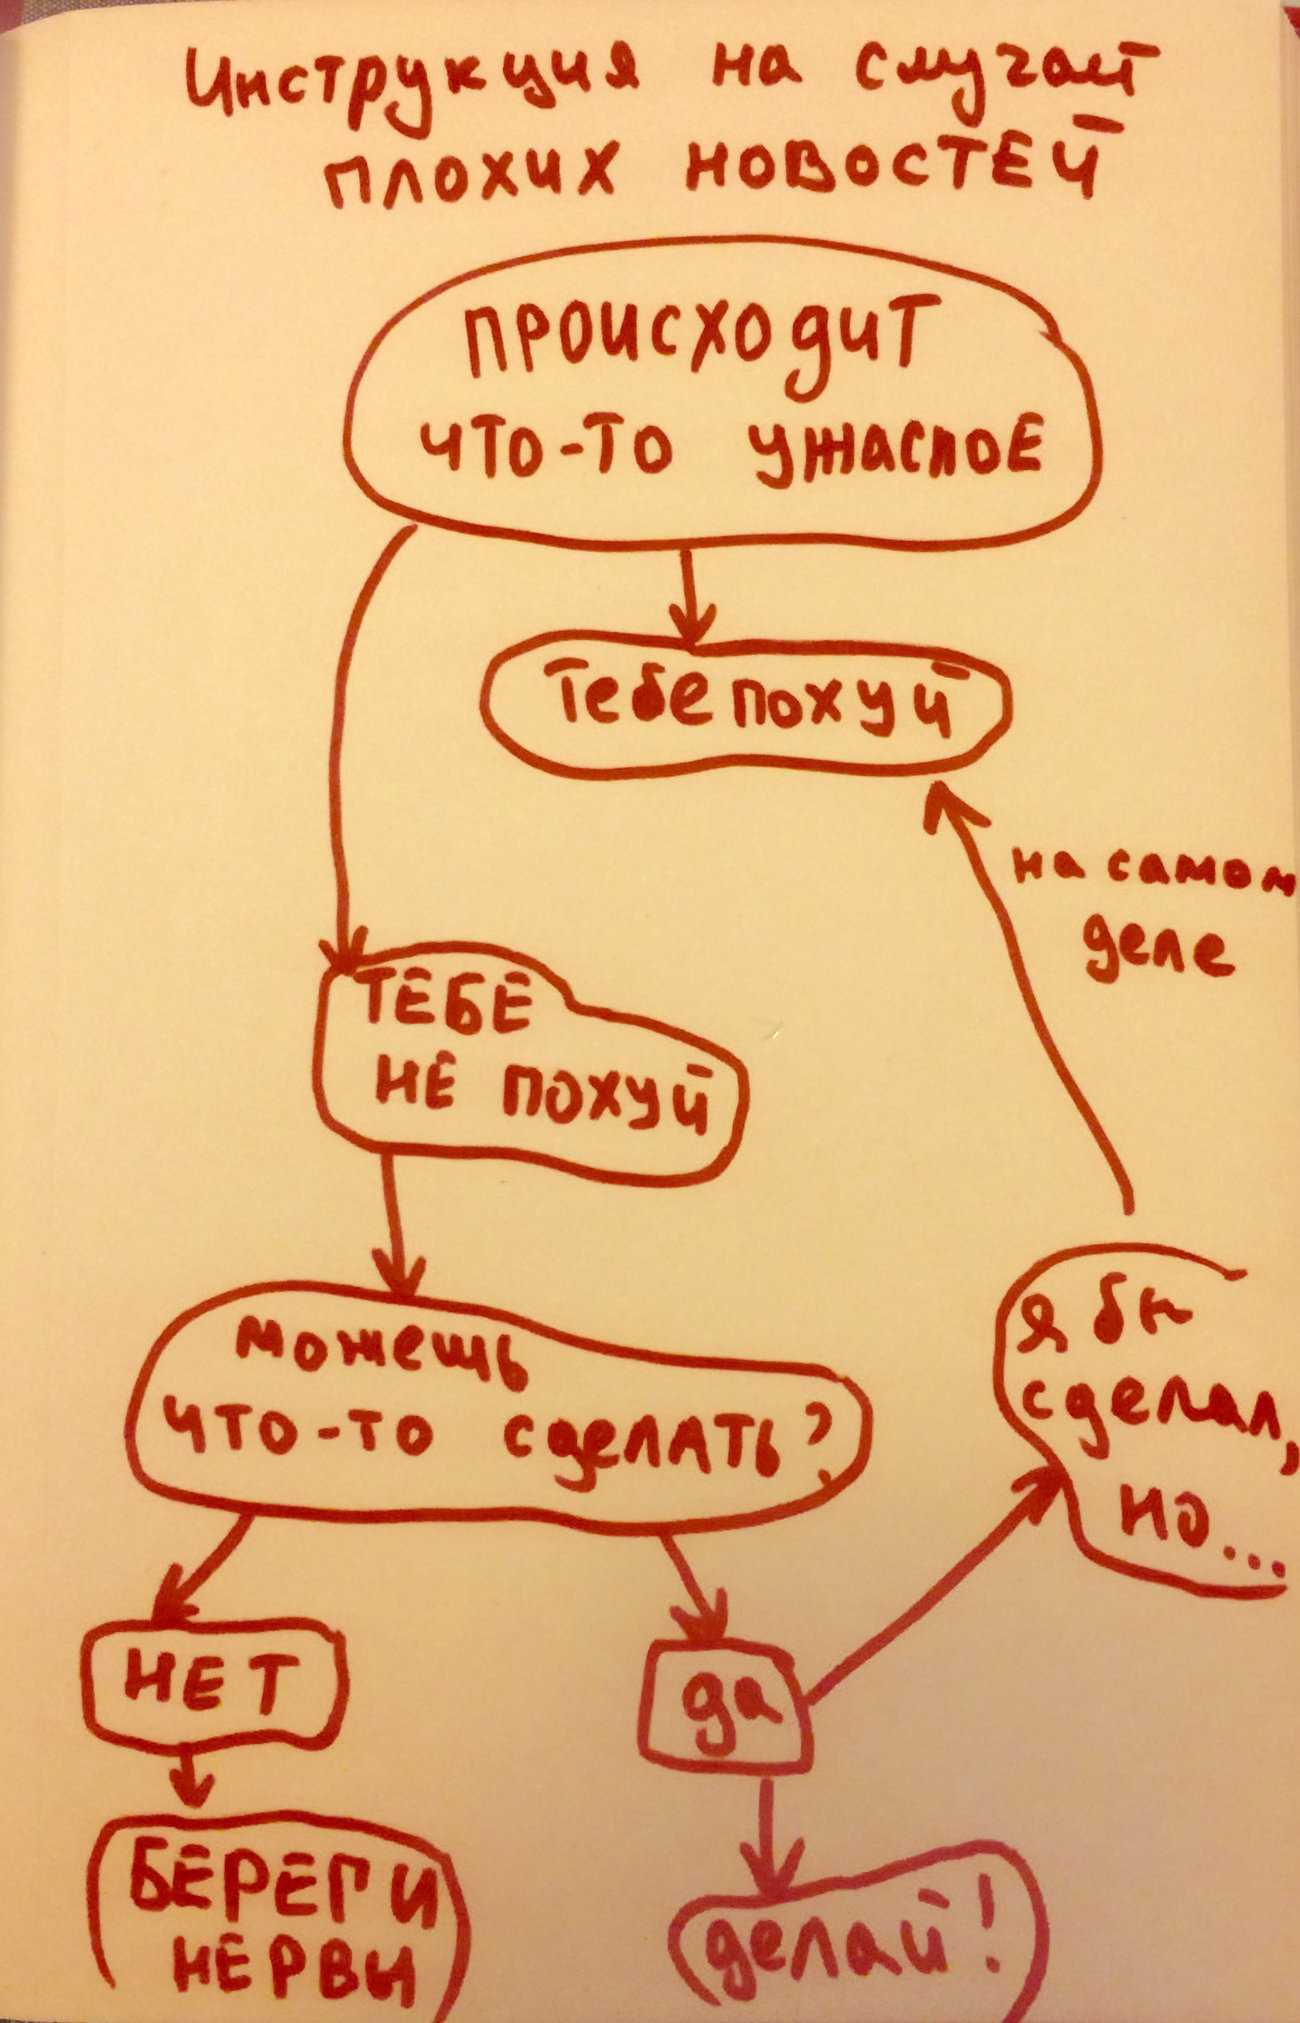 Инструкция на случай
плохих новостей
ПРОИСХОдиТ
ЧТО-ТО УЖАСНОЕ
Тебе похуй
на самом
деле
ТЕБЕ
НЕ ПОХУЙ
можешь
ЧТО-ТО СдеЛАТЬ?
я бы
сделал,
но...
НЕТ
да
БЕРЕГИ
НЕРВЫ
делай!